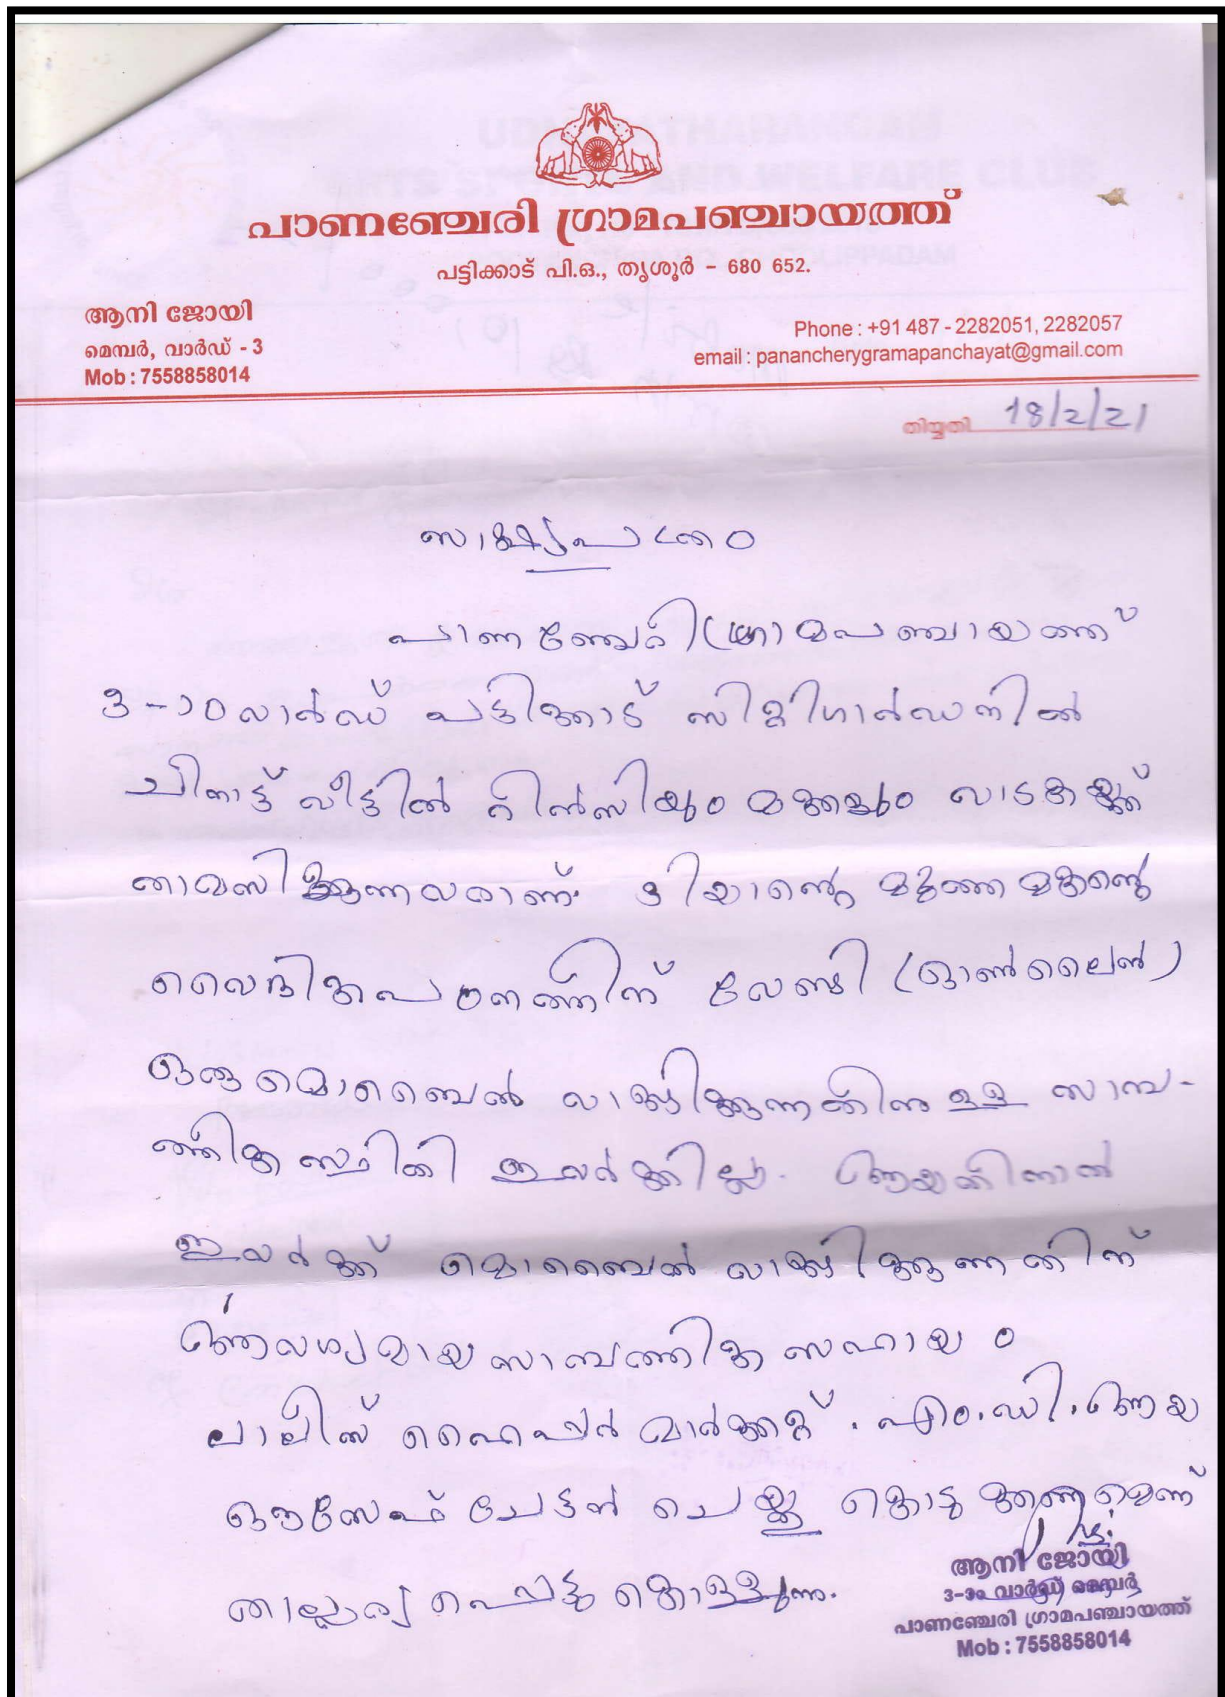 പാണഞ്ചേരി ഗ്രാമപഞ്ചായത്ത്
പട്ടിക്കാട് പി.ഒ., തൃശൂർ - 680 652.
ആനി ജോയി
മെമ്പർ, വാർഡ് - 3
Mob : 7558858014
Phone : +91 487 - 2282051, 2282057
email : panancherygramapanchayat@gmail.com
തിയ്യതി 18/2/21
സാക്ഷ്യപത്രം
പാണഞ്ചേരി ഗ്രാമപഞ്ചായത്ത്
3-ാം വാർഡ് പട്ടിക്കാട് സിറ്റിഗാർഡനിൽ
വീട്ടിൽ റിൻസിയും മക്കളും വാടകയ്ക്ക്
താമസിക്കുന്നവരാണ്. ടിയാന്റെ മൂത്ത മകന്റെ
വൈദികപഠനത്തിന് വേണ്ടി (ഓൺലൈൻ)
ഒരു മൊബൈൽ വാങ്ങിക്കുന്നതിനുള്ള സാമ്പ-
ത്തികസ്ഥിതി ഇവർക്കില്ല. ആയതിനാൽ
ഇവർക്ക് മൊബൈൽ വാങ്ങിക്കുന്നതിന്
ആവശ്യമായ സാമ്പത്തിക സഹായം
ഹൈപ്പർ മാർക്കറ്റ്. എം.ഡി. ആയ
ഔസേഫ് ചേട്ടൻ ചെയ്തു കൊടുക്കണമെന്ന്
താല്പര്യപ്പെട്ടു കൊള്ളുന്നു.
ആനി ജോയി
3-ാം വാർഡ് മെമ്പർ
പാണഞ്ചേരി ഗ്രാമപഞ്ചായത്ത്
Mob : 7558858014